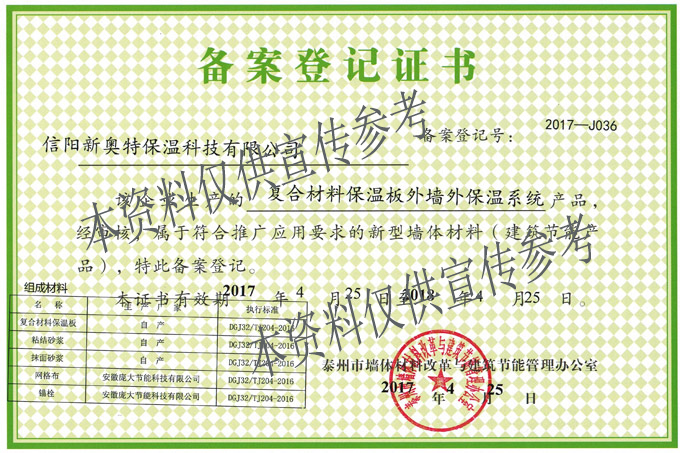 备案登记证书
信阳新奥特保温科技有限公司
备案登记号：
2017—J036
该企业生产的 复合材料保温板外墙外保温系统 产品，
经审核，属于符合推广应用要求的新型墙体材料（建筑节能产
品），特此备案登记。
本证书有效期 2017 年 4 月 25 日至 2018 年 4 月 25 日。
组成材料
名 称 生 产 厂 家 执行标准
复合材料保温板 自 产 DGJ32/TJ204-2016
粘结砂浆 自 产 DGJ32/TJ204-2016
抹面砂浆 自 产 DGJ32/TJ204-2016
网格布 安徽庞大节能科技有限公司 DGJ32/TJ204-2016
锚栓 安徽庞大节能科技有限公司 DGJ32/TJ204-2016
泰州市墙体材料改革与建筑节能管理办公室
2017 年 4 月 25 日
本资料仅供宣传参考
本资料仅供宣传参考